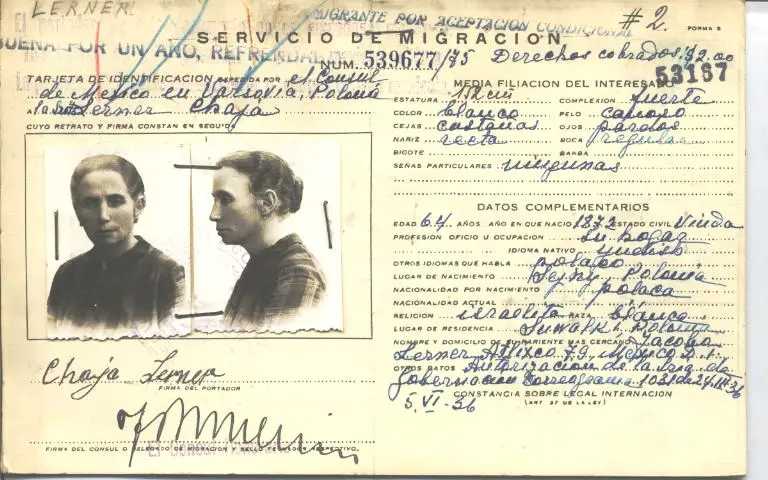 LERNER!
MIGRANTE POR ACEPTACION CONDICIONAL
#2.
FORMA 5
SERVICIO DE MIGRACION
BUENA POR UN AÑO, REFRENDAB
NUM. 539677/75
Derechos cobrados $2.00
53187
TARJETA DE IDENTIFICACION EXPEDIDA POR el Consul
de Mexico en Varsovia, Polonia
A la Sra Lerner Chaja
CUYO RETRATO Y FIRMA CONSTAN EN SEGUIDA
Chaja Lerner
FIRMA DEL PORTADOR
FIRMA DEL CONSUL O DELEGADO DE MIGRACION Y SELLO FECHADOR RESPECTIVO.
MEDIA FILIACION DEL INTERESADO
ESTATURA 152 cm COMPLEXION fuerte
COLOR blanco PELO canoso
CEJAS castañas OJOS pardos
NARIZ recta BOCA regular
BIGOTE BARBA
SEÑAS PARTICULARES ningunas
DATOS COMPLEMENTARIOS
EDAD 64 AÑOS AÑO EN QUE NACIO 1872 ESTADO CIVIL Viuda
PROFESION OFICIO U OCUPACION Su hogar
IDIOMA NATIVO yudish
OTROS IDIOMAS QUE HABLA polaco
LUGAR DE NACIMIENTO Sejny, Polonia
NACIONALIDAD POR NACIMIENTO polaca
NACIONALIDAD ACTUAL
RELIGION israelita RAZA blanca
LUGAR DE RESIDENCIA Suwalki, Polonia
NOMBRE Y DOMICILIO DE SU PARIENTE MAS CERCANO Jacobo
Lerner, Atlixco 79, Mexico D.F.
OTROS DATOS Autorización de la Sría. de
Gobernacion Correograma 1031 de 24.III-36
CONSTANCIA SOBRE LEGAL INTERNACION
(ART 57 DE LA LEY)
5.VI-36